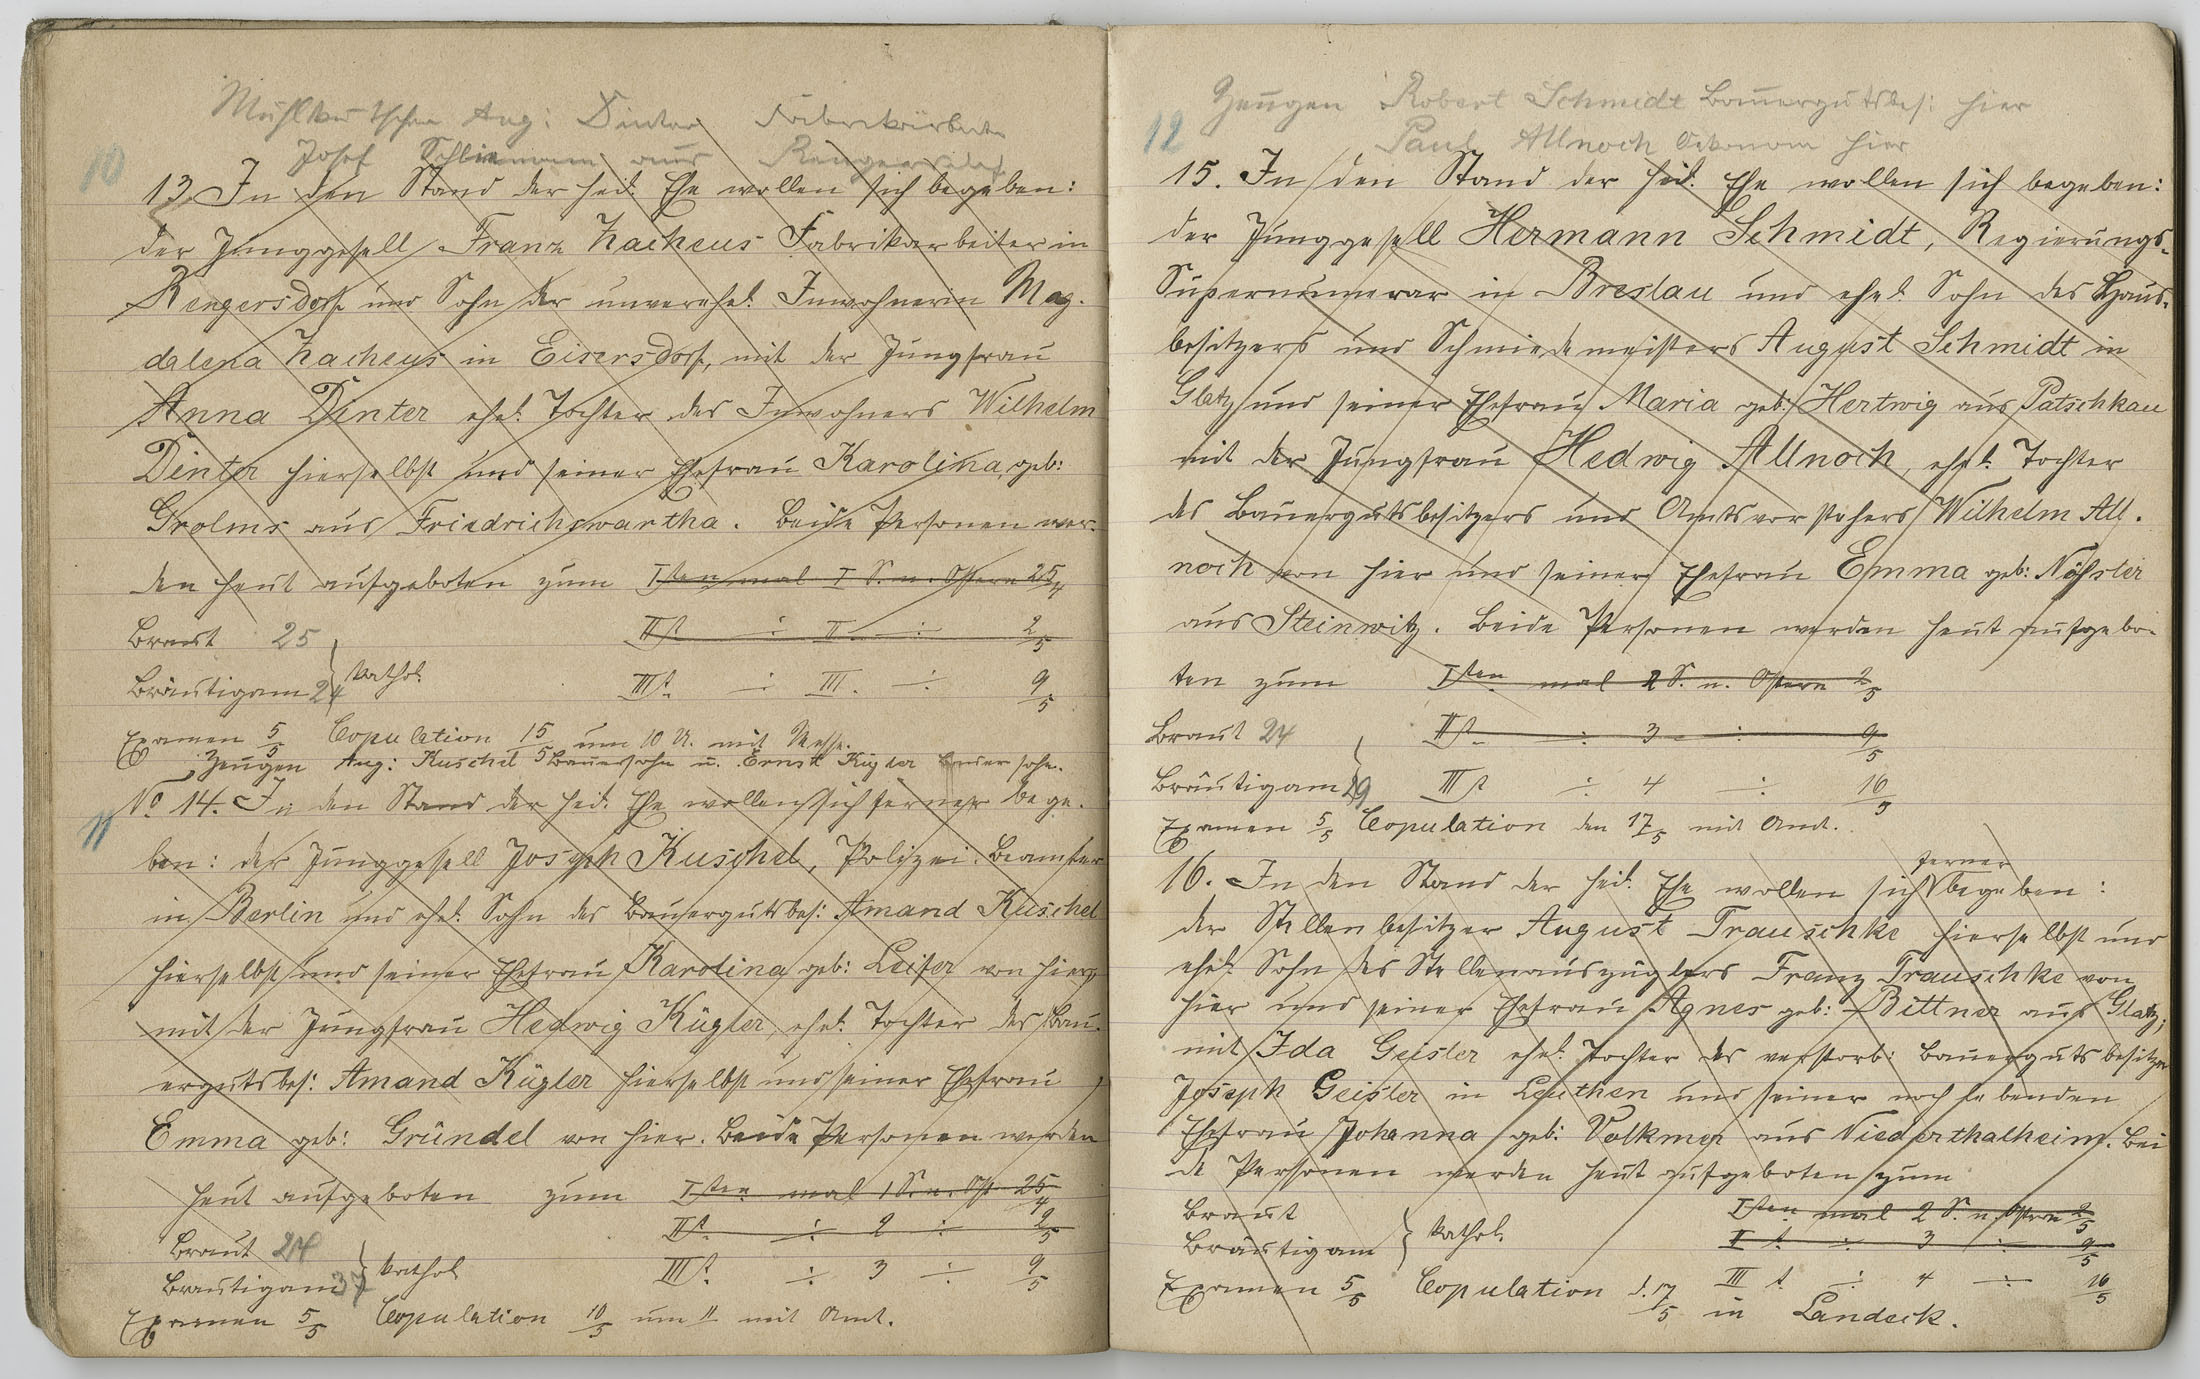 Aug: Dinter Fabrikarbeiter
Josef aus Rengersdorf
10
13. In den Stand der heil. Ehe wollen sich begeben:
der Junggesell Franz Zacheus Fabrikarbeiter in
Rengersdorf und Sohn der unverehel. Inwohnerin Mag-
dalena Zacheus in Eisersdorf, mit der Jungfrau
Anna Dinter ehel. Tochter des Inwohners Wilhelm
Dinter hierselbst und seiner Ehefrau Karolina, geb:
Grolms aus Friedrichswartha. Beide Personen wer-
den heut aufgeboten zum Iten mal I S. n. Ostern 25/4
Braut 25 IIt ÷ II ÷ 2/5
Bräutigam 24 } kathol. IIIt. ÷ III. ÷ 9/5
Examen 5/5 Copulation 15/5 um 10 U. mit Messe.
Zeugen Aug: Kuschel Bauersohn u. Ernst Kügler Bauersohn.
11
No 14. In den Stand der heil. Ehe wollen sich ferner bege-
ben: der Junggesell Joseph Kuschel, Polizei-Beamter
in Berlin und ehel. Sohn des Bauergutsbes: Amand Kuschel
hierselbst und seiner Ehefrau Karolina geb: Leifer von hier,
mit der Jungfrau Hedwig Kügler, ehel. Tochter des Bau-
ergutsbes: Amand Kügler hierselbst und seiner Ehefrau
Emma geb: Gründel von hier. Beide Personen werden
heut aufgeboten zum Iten mal 1 S. n. Ost 25/4
IIt. ÷ 2 ÷ 2/5
Braut 24
Bräutigam 37 } kathol. IIIt. ÷ 3 ÷ 9/5
Examen 5/5 Copulation 10/5 um 11 mit Amt.
Zeugen Robert Schmidt Bauergutsbes: hier
12
Paul Allnoch Oekonom hier
15. In den Stand der heil. Ehe wollen sich begeben:
der Junggesell Hermann Schmidt, Regierungs-
Supernumerar in Breslau und ehel. Sohn des Haus-
besitzers und Schmiedemeisters August Schmidt in
Glatz und seiner Ehefrau Maria geb: Hertwig aus Patschkau
mit der Jungfrau Hedwig Allnoch, ehel. Tochter
des Bauergutsbesitzers und Amtsvorstehers Wilhelm All-
noch von hier und seiner Ehefrau Emma geb:
aus Steinwitz. Beide Personen werden heut aufgebo-
ten zum Iten mal 2 S. n. Ostern 2/5
Braut 24 IIt. ÷ 3 ÷ 9/5
Bräutigam 29 } IIIt ÷ 4 ÷ 16/5
Examen 5/5 Copulation den 17/5 mit Amt.
16. In den Stand der heil. Ehe wollen sich ferner begeben:
der Stellenbesitzer August Trauschke hierselbst und
ehel. Sohn des Stellenauszüglers Franz Trauschke von
hier und seiner Ehefrau Agnes geb: Bittner aus Glatz;
mit Ida Geisler ehel. Tochter des verstorb: Bauergutsbesitzer
Joseph Geisler in Leuthen und seiner noch lebenden
Ehefrau Johanna geb: Volkmer aus Niederthalheim. Bei
de Personen werden heut aufgeboten zum
Braut Iten mal 2 S. n. Ostern 2/5
Bräutigam } kathol. II t. ÷ 3 ÷ 9/5
Examen 5/5 Copulation d. 17/5 III t ÷ 4 ÷ 16/5
in Landeck.